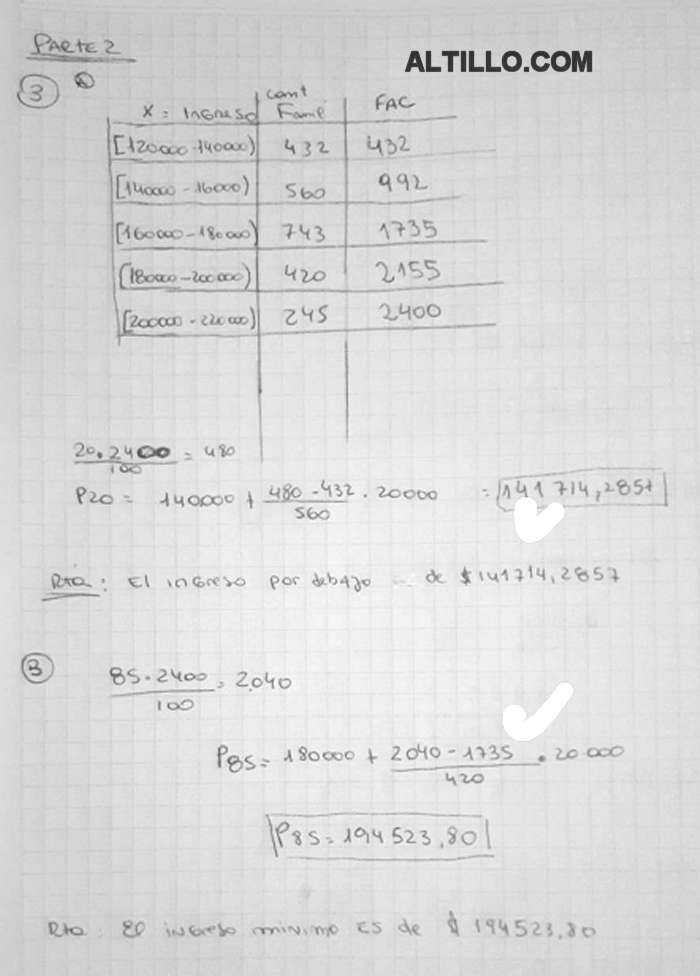 PARTE 2
ALTILLO.COM
3 A
X = Ingreso cant Fami FAC
[120000-140000) 432 432
[140000-16000) 560 992
[160000-180000) 743 1735
[180000-200000) 420 2155
[200000-220000) 245 2400
20.2400/100 = 480
P20 = 140.000 + 480-432/560 . 20000 = 141714,2857
Rta: El ingreso por debajo ... de $141714,2857
B
85.2400/100 = 2040
P85 = 180000 + 2040-1735/420 . 20000
P85 = 194523,80
Rta: El ingreso minimo es de $ 194523,80